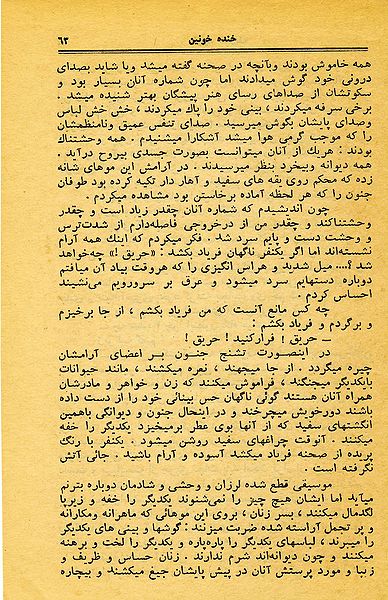 خنده خونین ۶۳
همه خاموش بودند وبآنچه در صحنه گفته میشد ویا شاید بصدای
درونی خود گوش میدادند اما چون شماره آنان بسیار بود و
سکوتشان از صداهای رسای هنر پیشگان بهتر شنیده میشد .
برخی سرفه میکردند ، بینی خود را پاك میکردند ، خش خش لباس
وصدای پایشان بگوش میرسید . صدای تنفس عمیق ونامنظمشان
را که موجب گرمی هوا میشد آشکارا میشنیدم . همه وحشتناك
بودند : هریك از آنان میتوانست بصورت جسدی بیروح درآید .
همه دیوانه وبیخرد بنظر میرسیدند . در آرامش این موهای شانه
زده که محکم روی یقه های سفید و آهار دار تکیه کرده بود طوفان
جنون را که هر لحظه آماده برخاستن بود مشاهده میکردم .
چون اندیشیدم که شماره آنان چقدر زیاد است و چقدر
وحشتناکند و چقدر من از درخروجی فاصله‌دارم از شدت‌ترس
و وحشت دست و پایم سرد شد . فکر میکردم که اینك همه آرام
نشسته‌اند اما اگر یکنفر ناگهان فریاد بکشد : «حریق !» چه‌خواهد
شد ؟.... میل شدید و هراس انگیزی را که هروقت بیاد آن میافتم
دوباره دستهایم سرد میشود و عرق بر سرورویم می‌نشیند
احساس کردم .
چه کس مانع آنست که من فریاد بکشم ، از جا برخیزم
و برگردم و فریاد بکشم :
ــ حریق ! فرارکنید ! حریق !
در اینصورت تشنج جنون بر اعضای آرامشان
چیره میگردد . از جا میجهند ، نعره میکشند ، مانند حیوانات
بایکدیگر میجنگند ، فراموش میکنند که زن و خواهر و مادرشان
همراه آنان هستند گوئی ناگهان حس بینائی خود را از دست داده
باشند دورخویش میچرخند و در اینحال جنون و دیوانگی باهمین
انگشتهای سفید که از آنها بوی عطر برمیخیزد یکدیگر را خفه
میکنند . آنوقت چراغهای سفید روشن میشود . یکنفر با رنگ
پریده از صحنه فریاد میکشد آسوده و آرام باشید . جائی آتش
نگرفته است .
موسیقی قطع شده لرزان و وحشی و شادمان دوباره بترنم
میآید اما ایشان هیچ چیز را نمی‌شنوند یکدیگر را خفه و زیرپا
لگدمال میکنند ، بسر زنان ، بروی این موهائی که ماهرانه ومکارانه
و پر تجمل آراسته شده ضربت میزنند : گوشها و بینی های یکدیگر
را میبرند ، لباسهای یکدیگر را پاره‌پاره و یکدیگر را لخت و برهنه
میکنند و چون دیوانه‌اند شرم ندارند . زنان حساس و ظریف و
زیبا و مورد پرستش آنان در پیش پایشان جیغ میکشند و بیچاره